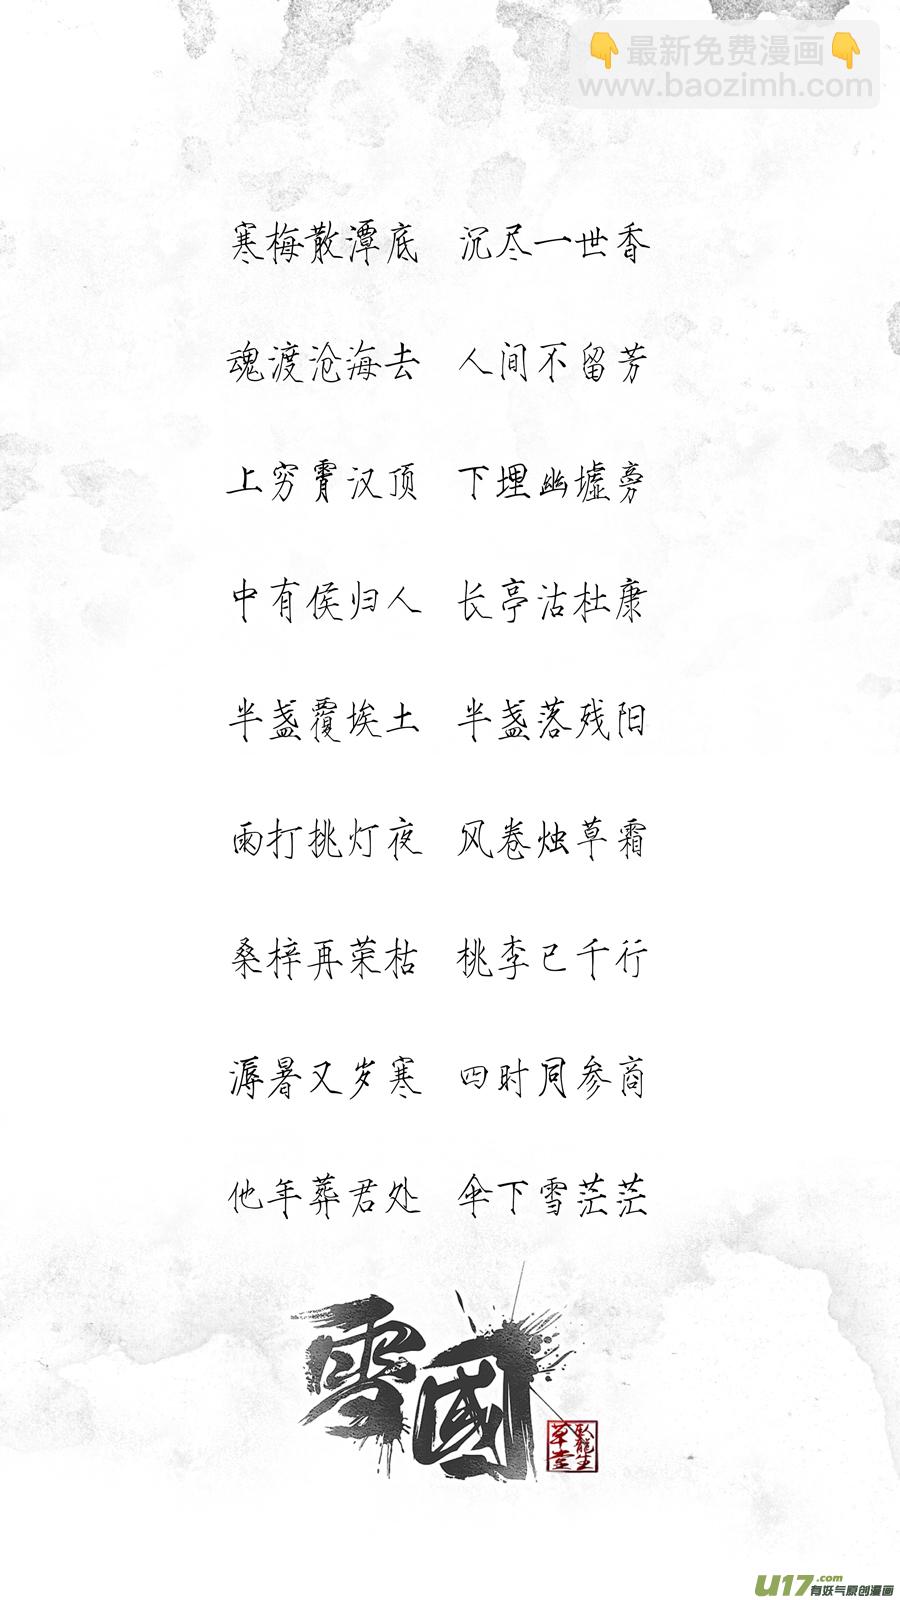 👇最新免费漫画👇
www.baozimh.com
寒梅散潭底 沉尽一世香
魂渡沧海去 人间不留芳
上穷霄汉顶 下埋幽墟旁
中有侯归人 长亭沽杜康
半盏覆埃土 半盏落残阳
雨打挑灯夜 风卷烛草霜
桑梓再荣枯 桃李已千行
溽暑又岁寒 四时同参商
他年葬君处 伞下雪茫茫
雪國
臥龍生
草堂
U17.com
有妖气原创漫画